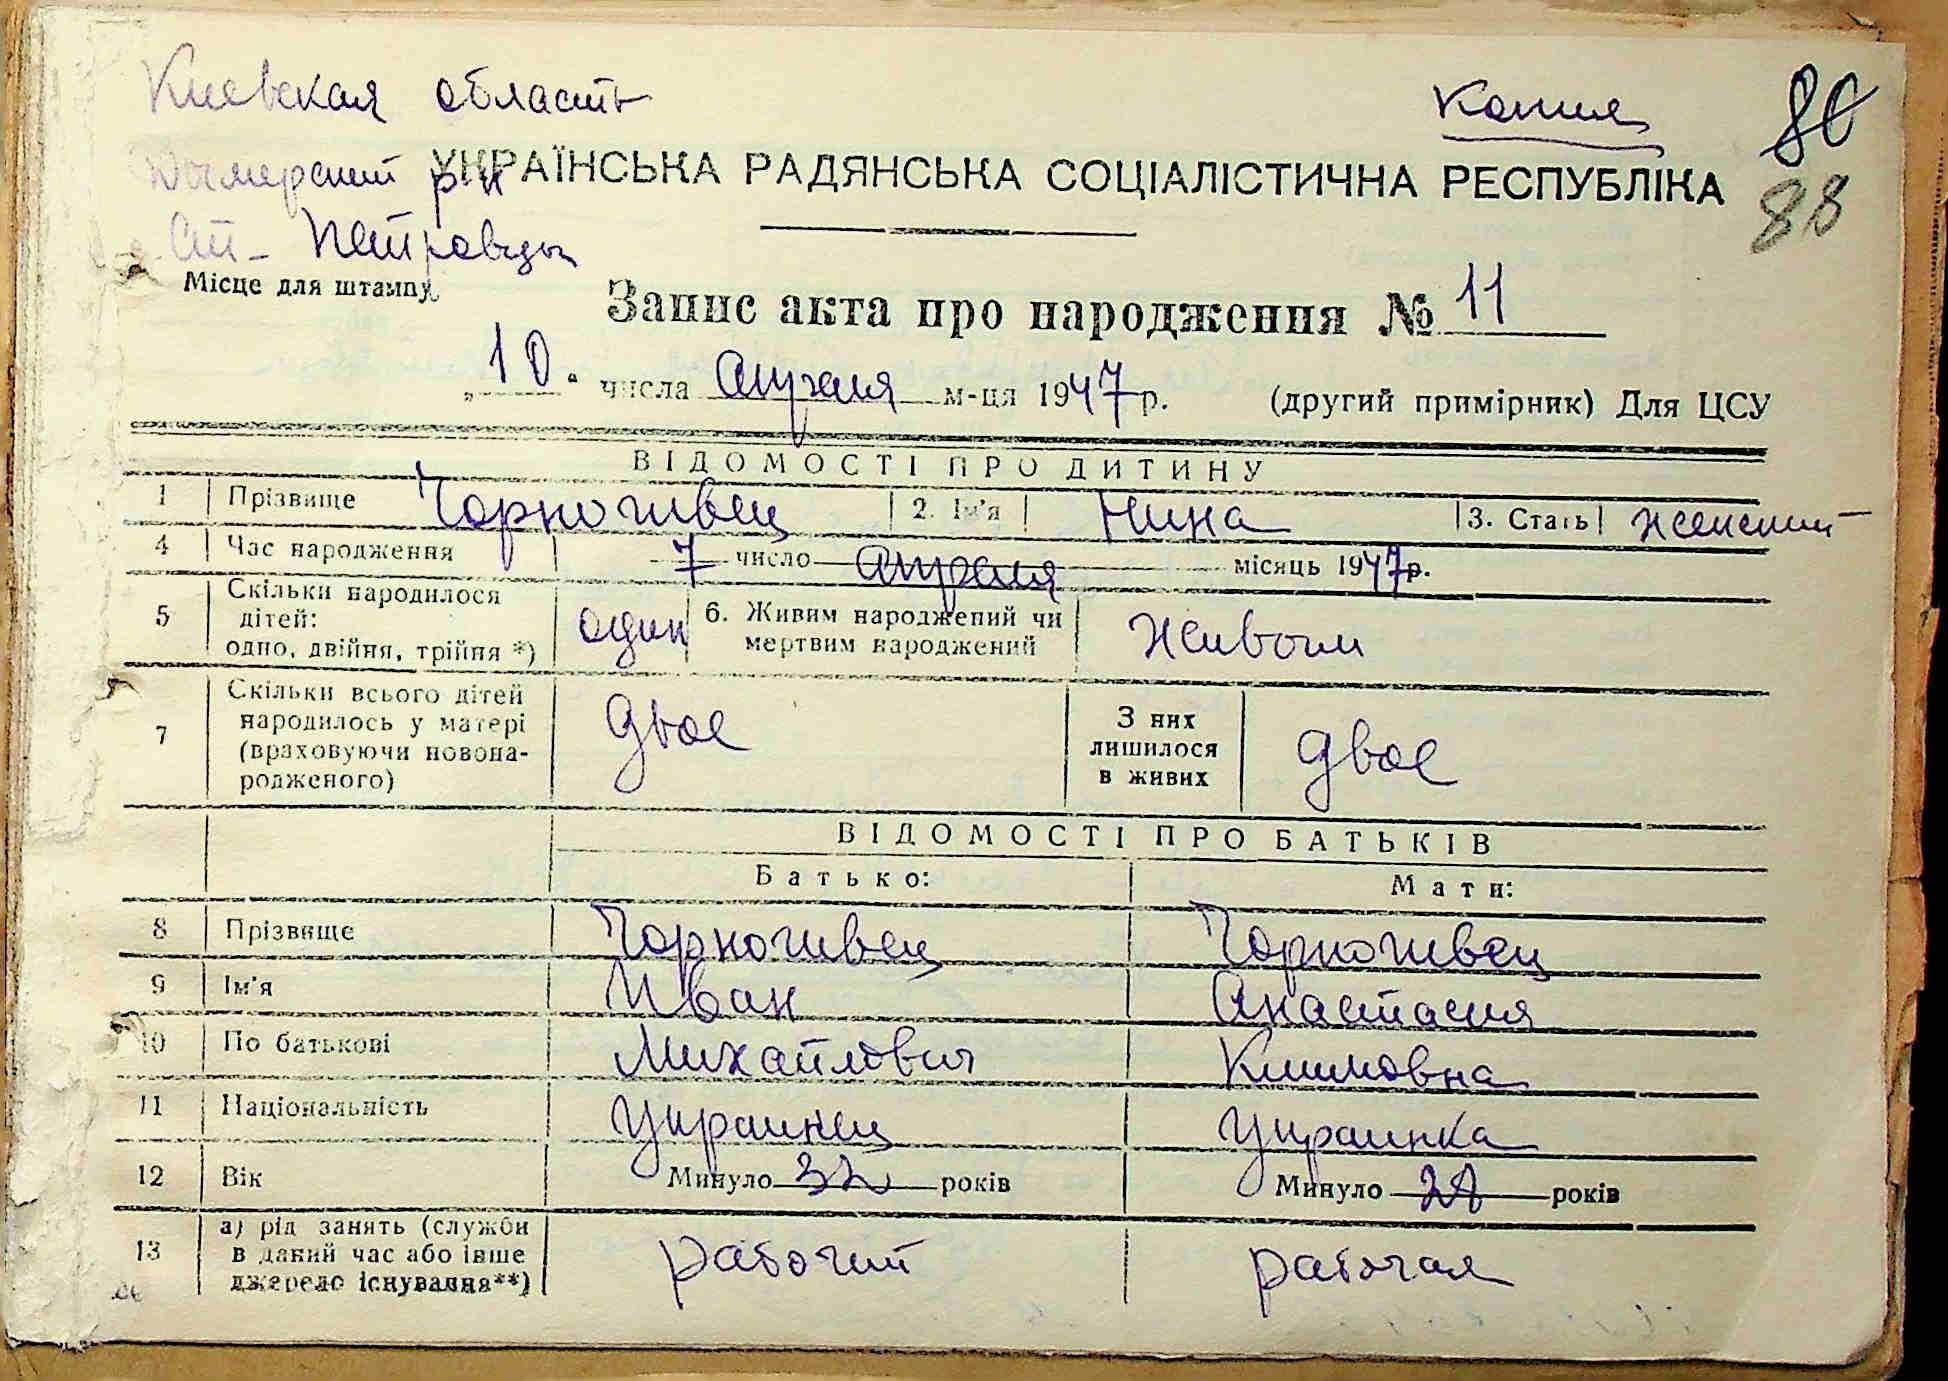 Киевская область
Копия
80
Дымерский р-н УКРАЇНСЬКА РАДЯНСЬКА СОЦІАЛІСТИЧНА РЕСПУБЛІКА
88
Ст- Петровцы
Місце для штампу
Запис акта про народження № 11
„10“ числа Апреля м-ця 1947 р. (другий примірник) Для ЦСУ
ВІДОМОСТІ ПРО ДИТИНУ
1 Прізвище Чорногивец 2. Ім'я Нина 3. Стать женский
4 Час народження 7 число апреля місяць 1947 р.
5 Скільки народилося дітей: одно, двійня, трійня *) один 6. Живим народжений чи мертвим народжений живым
7 Скільки всього дітей народилось у матері (враховуючи новонародженого) двое З них лишилося в живих двое
ВІДОМОСТІ ПРО БАТЬКІВ
Батько: Мати:
8 Прізвище Чорногивец Чорногивец
9 Ім'я Иван Анастасия
10 По батькові Михайлович Климовна
11 Національність Украинец Украинка
12 Вік Минуло 32 років Минуло 28 років
13 а) рід занять (служби в даний час або інше джерело існування**) рабочий рабочая